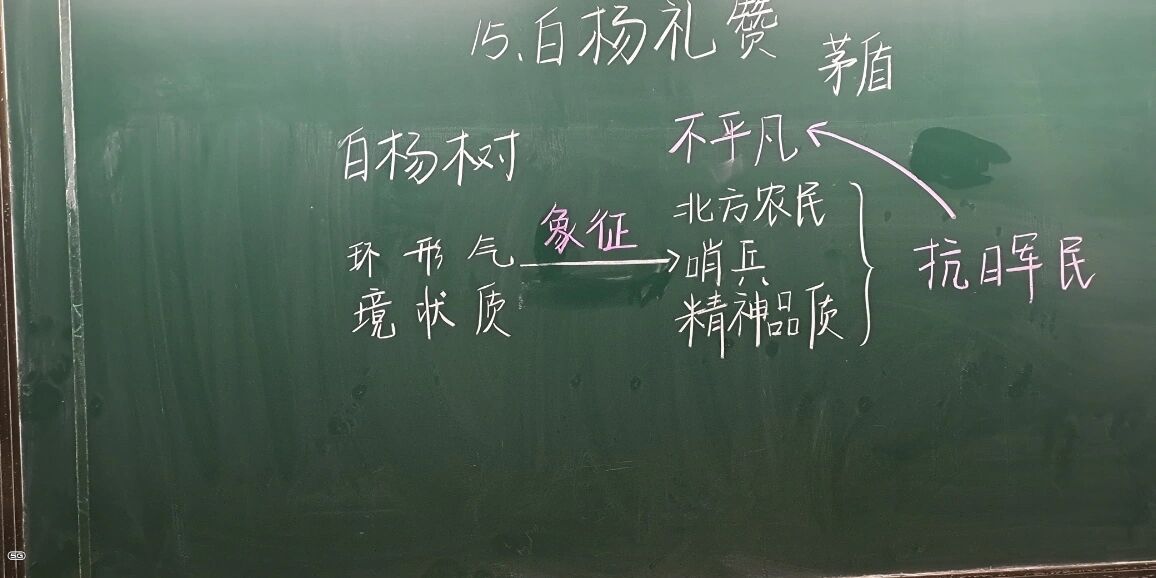 15、白杨礼赞
茅盾
白杨树
不平凡
环境 形状 气质
象征
北方农民
哨兵
精神品质
抗日军民
5G